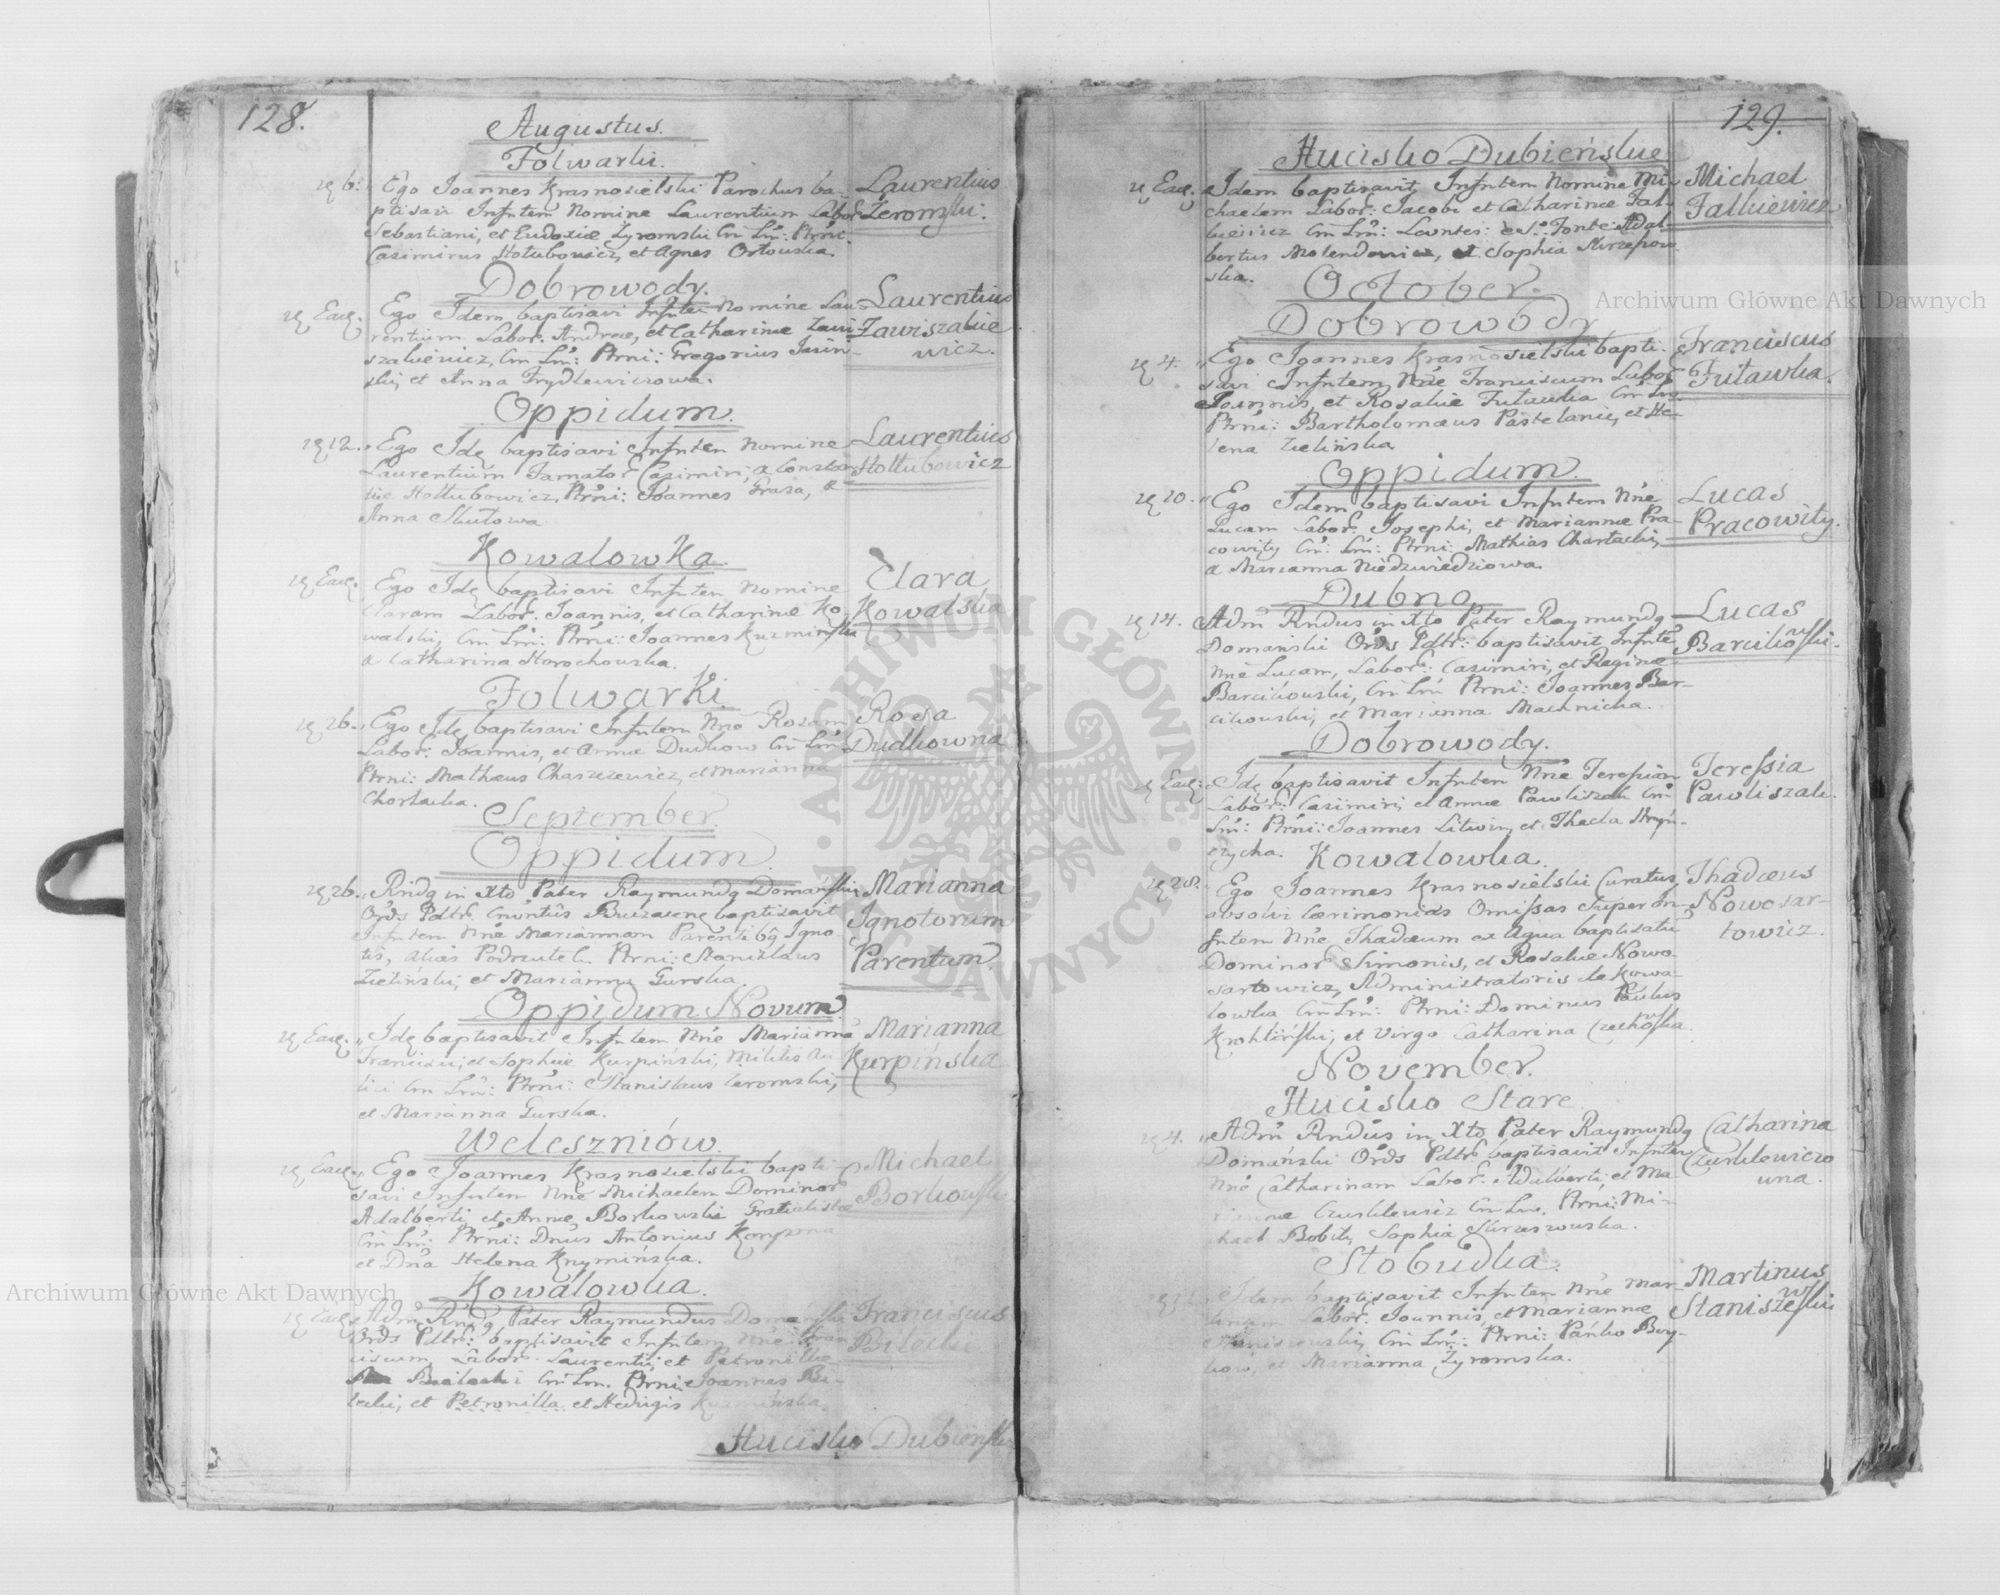 128.
Augustus.
Folwarki.
Ego Joannes Krasnosielski Parochus ba-
ptisavi Infntem Nomine Laurentium Labor
Sebastiani, et Eudoxiæ Zyromski Cu Lm: Ptrni:
Casimirus Hołubowicz, et Agnes Orłowska.
Laurentius
Żeromski.
Dobrowody.
Ego Idem baptisavi Infntem Nomine Lau-
rentium Labor: Andreæ, et Catharinæ Zawi-
szakiewicz, Cu Lm: Ptrni: Gregorius Jasin-
ski, et Anna Frydlewiczowa.
Laurentius
Zawiszakie
wicz.
Oppidum.
12. Ego Idē baptisavi Infntem Nomine
Laurentium Casimiri, a Constan
Hołubowicz, Ptrni: Joannes
Anna
Laurentius
Hołubowicz
Kowalowka.
Ego Idē baptisavi Infntem Nomine
Claram Labor. Joannis, et Catharinæ Ko-
walski, Cu Lm: Ptrni: Joannes Kuzminski
a Catharina Horochowska.
Clara
Kowalska
Folwarki.
26. Ego Idē baptisavi Infntem Nne Rosam
Labor: Joannis, et Annæ Dudkow Cu Lm:
Ptrni: Mathæus et Marianna
Rosa
Dudkowna
September.
Oppidum.
26. Rndq in Xto Pater Raymundq Domański
baptisavit
Infntem Nne Mariannam Parentibq Igno
tis, alias Podrzutek. Ptrni: Stanislaus
Zieliński, et Marianna Gurska
Marianna
Ignotorum
Parentum.
Oppidum Novum.
Idē baptisavit Infntem Nne Marianna
Francisci, et Sophiæ Kurpiński, Militis
Cu Lm: Ptrni: Stanislaus Żeromski,
et Marianna Gurska.
Marianna
Kurpińska
Weleszniów.
Ego Joannes Krasnosielski bapti-
savi Infntem Nne Michaelem Dominor
Adalberti, et Annæ Borkowski Gratialistæ
Cu Lm: Ptrni: Dnus Antonius
et Dna Helena Krymińska.
Michael
Borkowski
Kowalowka.
Adm Rndq Pater Raymundus Domański
Ords Pdtr: baptisavit Infntem Nne Fran
ciscum Labor. Laurentii, et Petronillæ
Bielecki Cu Lm. Ptrni: Joannes Bi-
lecki, et Petronilla et Hedvigis Kuzmińska.
Franciscus
Bilecki
Hucisko Dubieńskie
129.
Hucisko Dubieńskie
Idem baptisavit Infntem Nomine Mi-
chaelem Labor: Jacobi et Catharinæ Fal-
kiewicz Cu Lm: Levntes: de S: Fonte: Adal-
bertus Molendowicz, et Sophia Skrzypow
ska.
Michael
Falkiewicz
October.
Dobrowody
4. Ego Joannes Krasnosielski bapti-
savi Infntem Nne Franciscum Labor
Joannis, et Rosaliæ Futawka Cu Lm
Ptrni: Bartholomæus Pastelanic, et He-
lena Zielińska
Franciscus
Futawka.
Oppidum.
10. Ego Idem baptisavi Infntem Nne
Lucam Labor: Josephi, et Mariannæ Pra-
cowity Cu: Lm: Ptrni: Mathias Chartacki,
a Marianna Niedzwiedziowa.
Lucas
Pracowity.
Dubno
14. Adm Rndus in Xto Pater Raymundq
Domański Ords Pdtr: baptisavit Infntem
Nne Lucam, Labor: Casimiri, et Reginæ
Barcikowski, Cu Lm Ptrni: Joannes Bar-
cikowski, et Marianna Machnicka.
Lucas
Barcikowski.
Dobrowody.
Idē baptisavit Infntem Nne Teressiam
Labor: Casimiri, et Annæ Pawliszak Cu
Lm: Ptrni: Joannes Litwin, et Thecla Hryń-
czycha.
Teressia
Pawliszak.
Kowalowka.
28. Ego Joannes Krasnosielski Curatus
absolvi Cærimonias Omissas super In-
fntem Nne Thadæum ex Aqua baptisatu
Dominor Simonis, et Rosaliæ Nowo-
sartowicz, Administratoris de Kowa-
lowka Cu Lm: Ptrni: Dominus Paulus
et Virgo Catharina Czechowska.
Thadæus
Nowosar-
towicz.
November.
Hucisko Stare.
4. Adm Rndus in Xto Pater Raymundq
Domański Ords Pdtr baptisavit Infntem
Nne Catharinam Labor. Adalberti, et Ma-
riannæ Czuchlewicz Cu Lm. Ptrni: Mi-
chael Bobik, Sophia Skrzeszewska.
Catharina
Czuchlewiczo
wna.
Słobudka.
Idem baptisavit Infntem Nne Mar-
tinum Labor. Joannis, et Mariannæ
Staniszewski, Cu Lm: Ptrni: Pańko Boy-
kow, et Marianna Zyromska.
Martinus
Staniszewski
Archiwum Główne Akt Dawnych
Archiwum Główne Akt Dawnych
ARCHIWUM GŁÓWNE AKT DAWNYCH